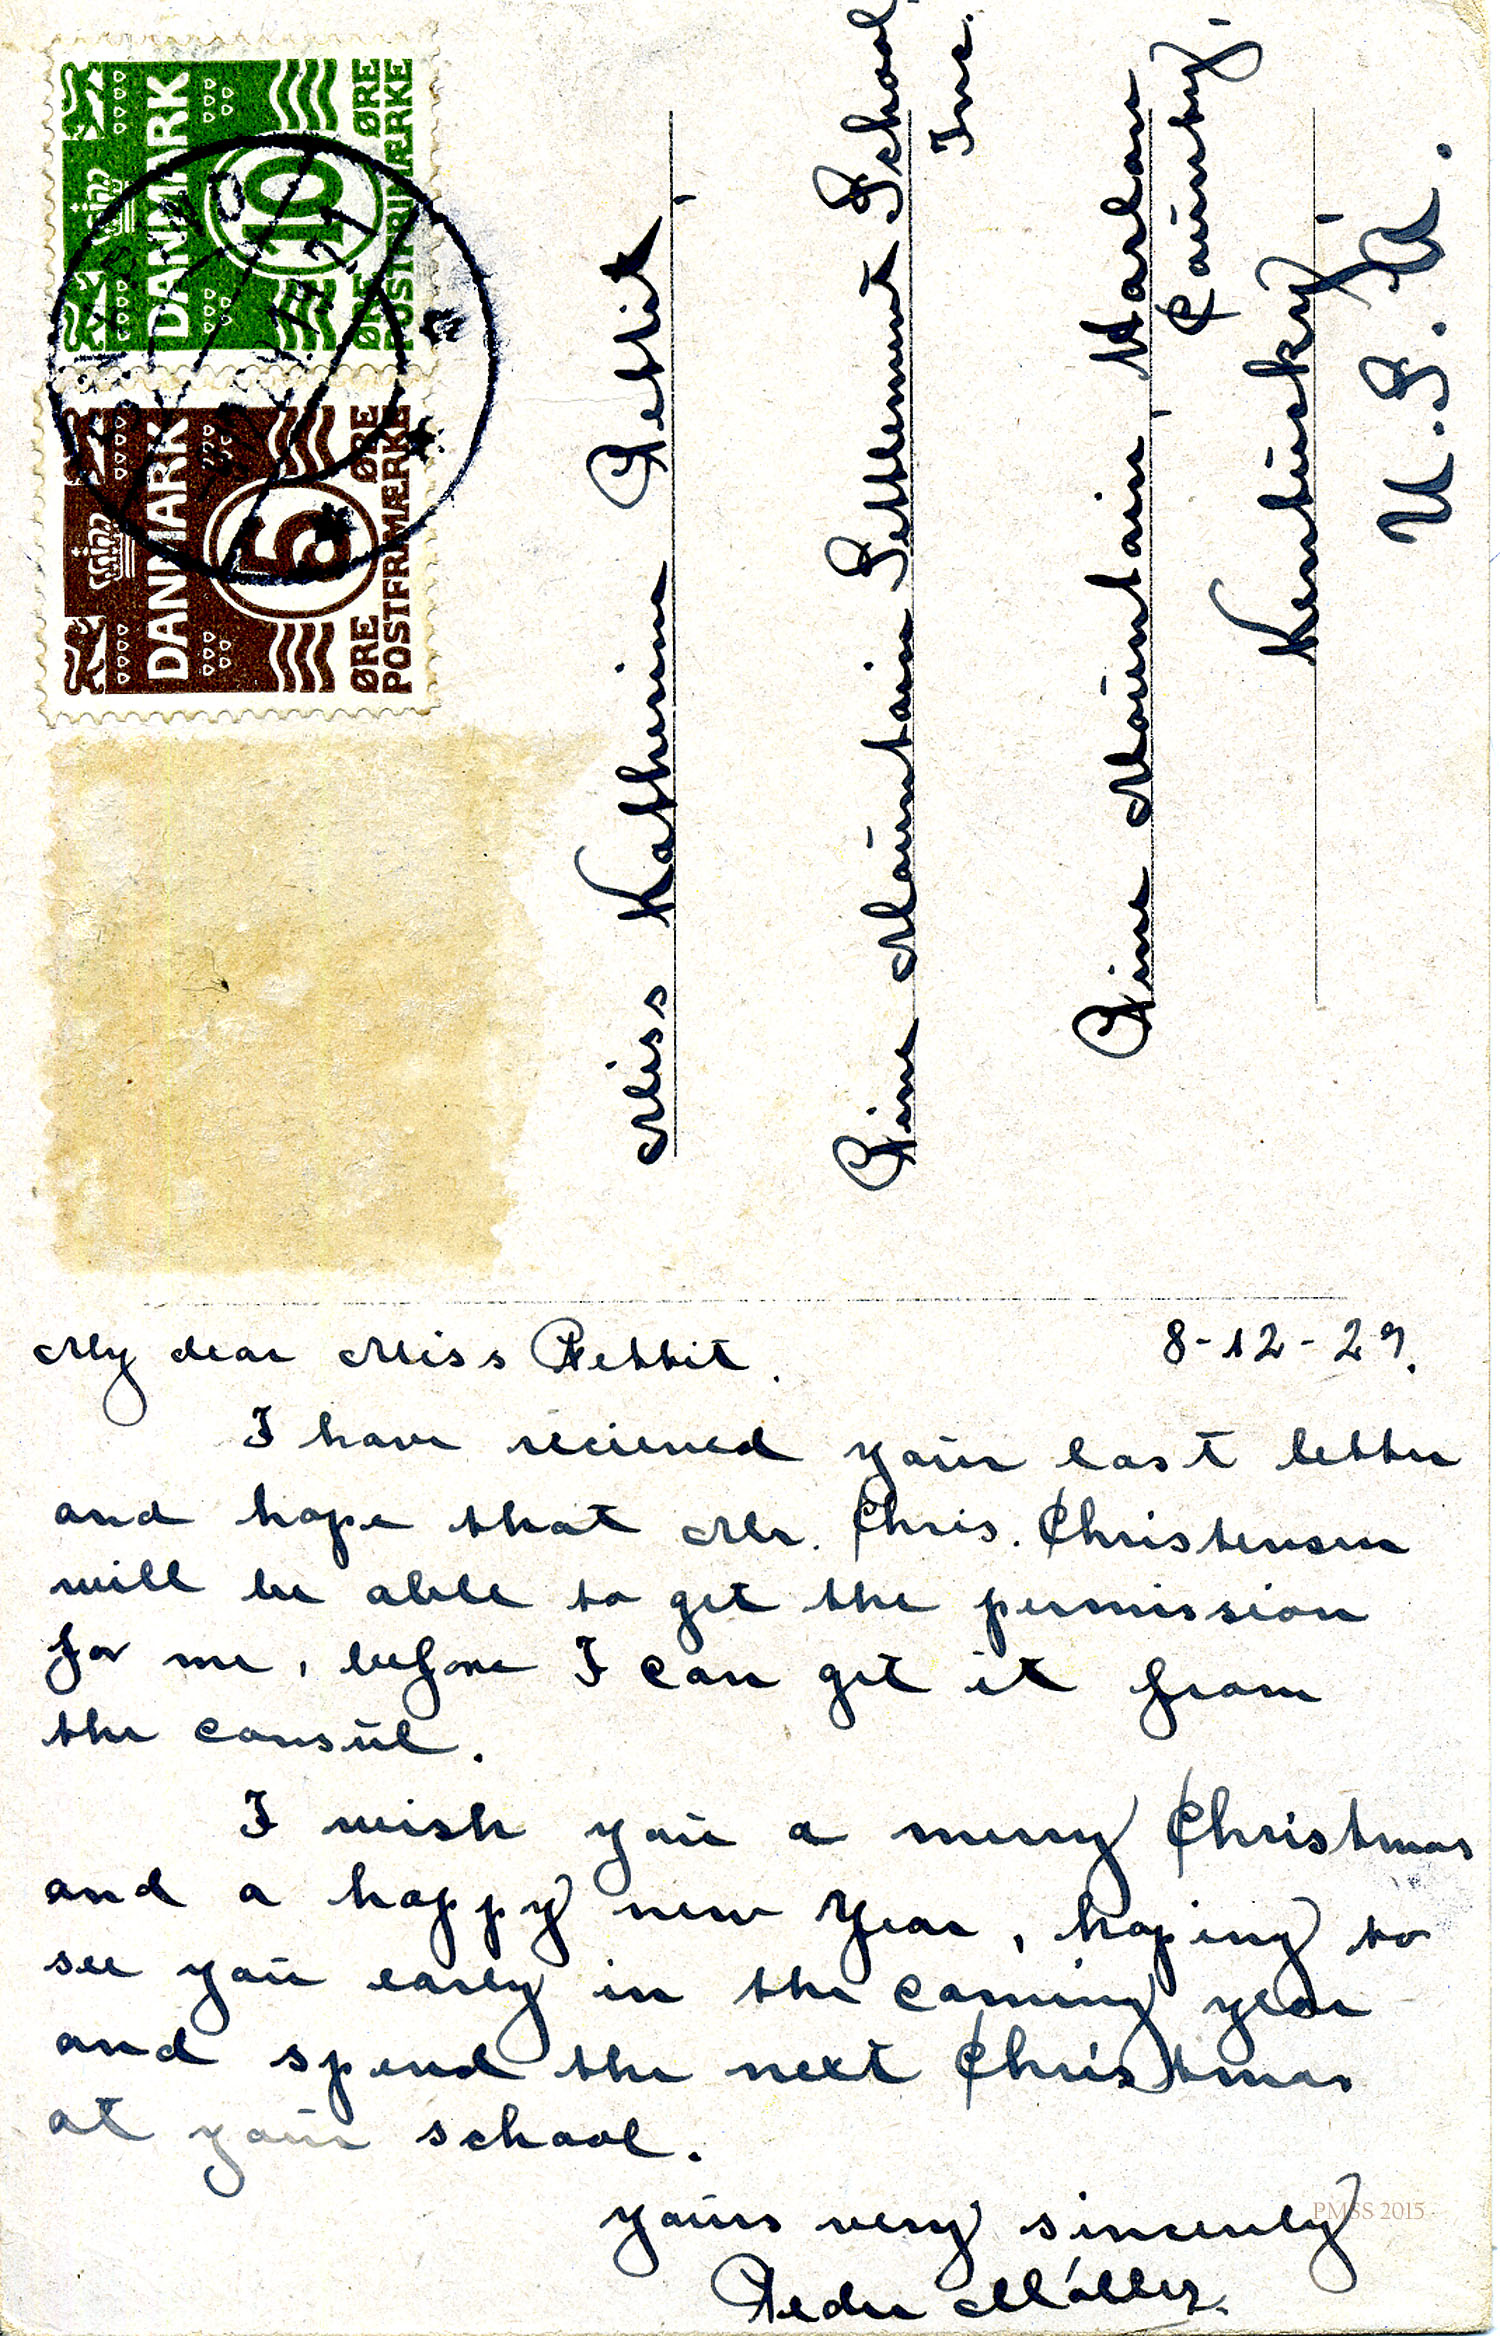 DANMARK
10
ØRE ØRE
POSTFRIMÆRKE
DANMARK
5
ØRE ØRE
POSTFRIMÆRKE
Miss Katherine Pettit,
Pine Mountain Settlement School
Inc.
Pine Mountain, Harlan
County,
Kentucky,
U. S. A.
My dear Miss Pettit. 8-12-29.
I have recieved your last letter
and hope that Mr. Chris. Christensen
will be able to get the permission
for me, before I can get it from
the consul.
I wish you a merry Christmas
and a happy new Year, hoping to
see you early in the coming year
and spend the next Christmas
at your school.
yours very sincerely
Peder Möller.
PMSS 2015